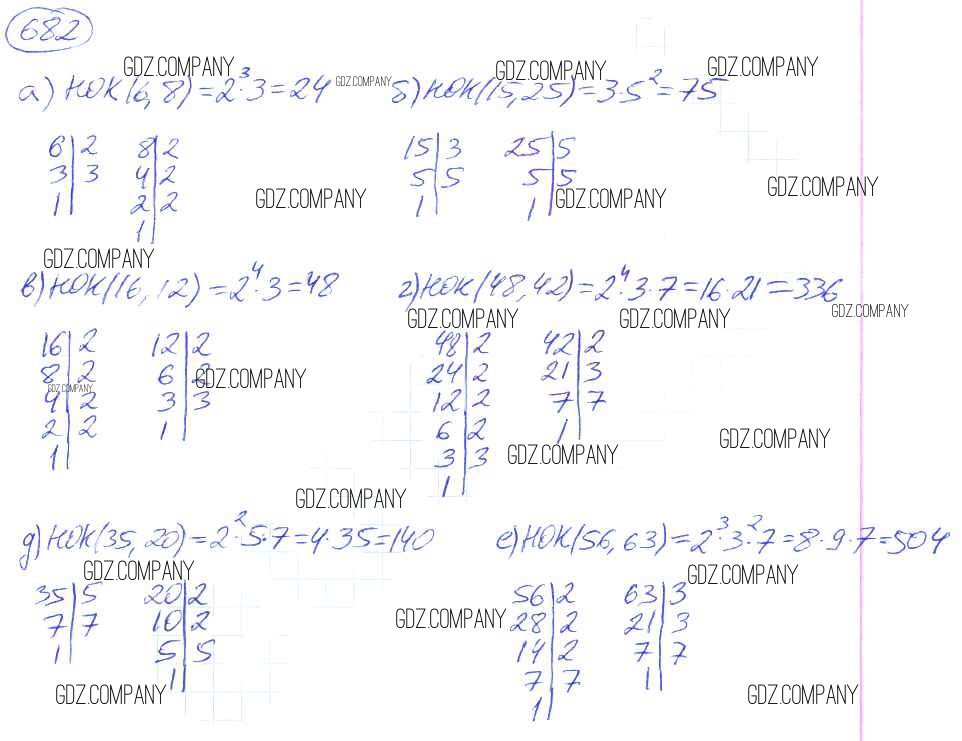 682
GDZ.COMPANY GDZ.COMPANY GDZ.COMPANY
а) НОК(6,8)=2³·3=24 GDZ.COMPANY б) НОК(15,25)=3·5²=75
6|2 8|2 15|3 25|5
3|3 4|2 5|5 5|5 GDZ.COMPANY
1| 2|2 GDZ.COMPANY 1| 1| GDZ.COMPANY
1|
GDZ.COMPANY
в) НОК(16,12)=2⁴·3=48 г) НОК(48,42)=2⁴·3·7=16·21=336
GDZ.COMPANY GDZ.COMPANY GDZ.COMPANY
16|2 12|2 48|2 42|2
8|2 6|2 GDZ.COMPANY 24|2 21|3
GDZ.COMPANY
4|2 3|3 12|2 7|7
2|2 1| 6|2 1| GDZ.COMPANY
1| 3|3 GDZ.COMPANY
1|
GDZ.COMPANY
д) НОК(35,20)=2²·5·7=4·35=140 е) НОК(56,63)=2³·3²·7=8·9·7=504
GDZ.COMPANY GDZ.COMPANY
35|5 20|2 56|2 63|3
7|7 10|2 GDZ.COMPANY 28|2 21|3
1| 5|5 14|2 7|7
1| 7|7 1|
GDZ.COMPANY 1| GDZ.COMPANY